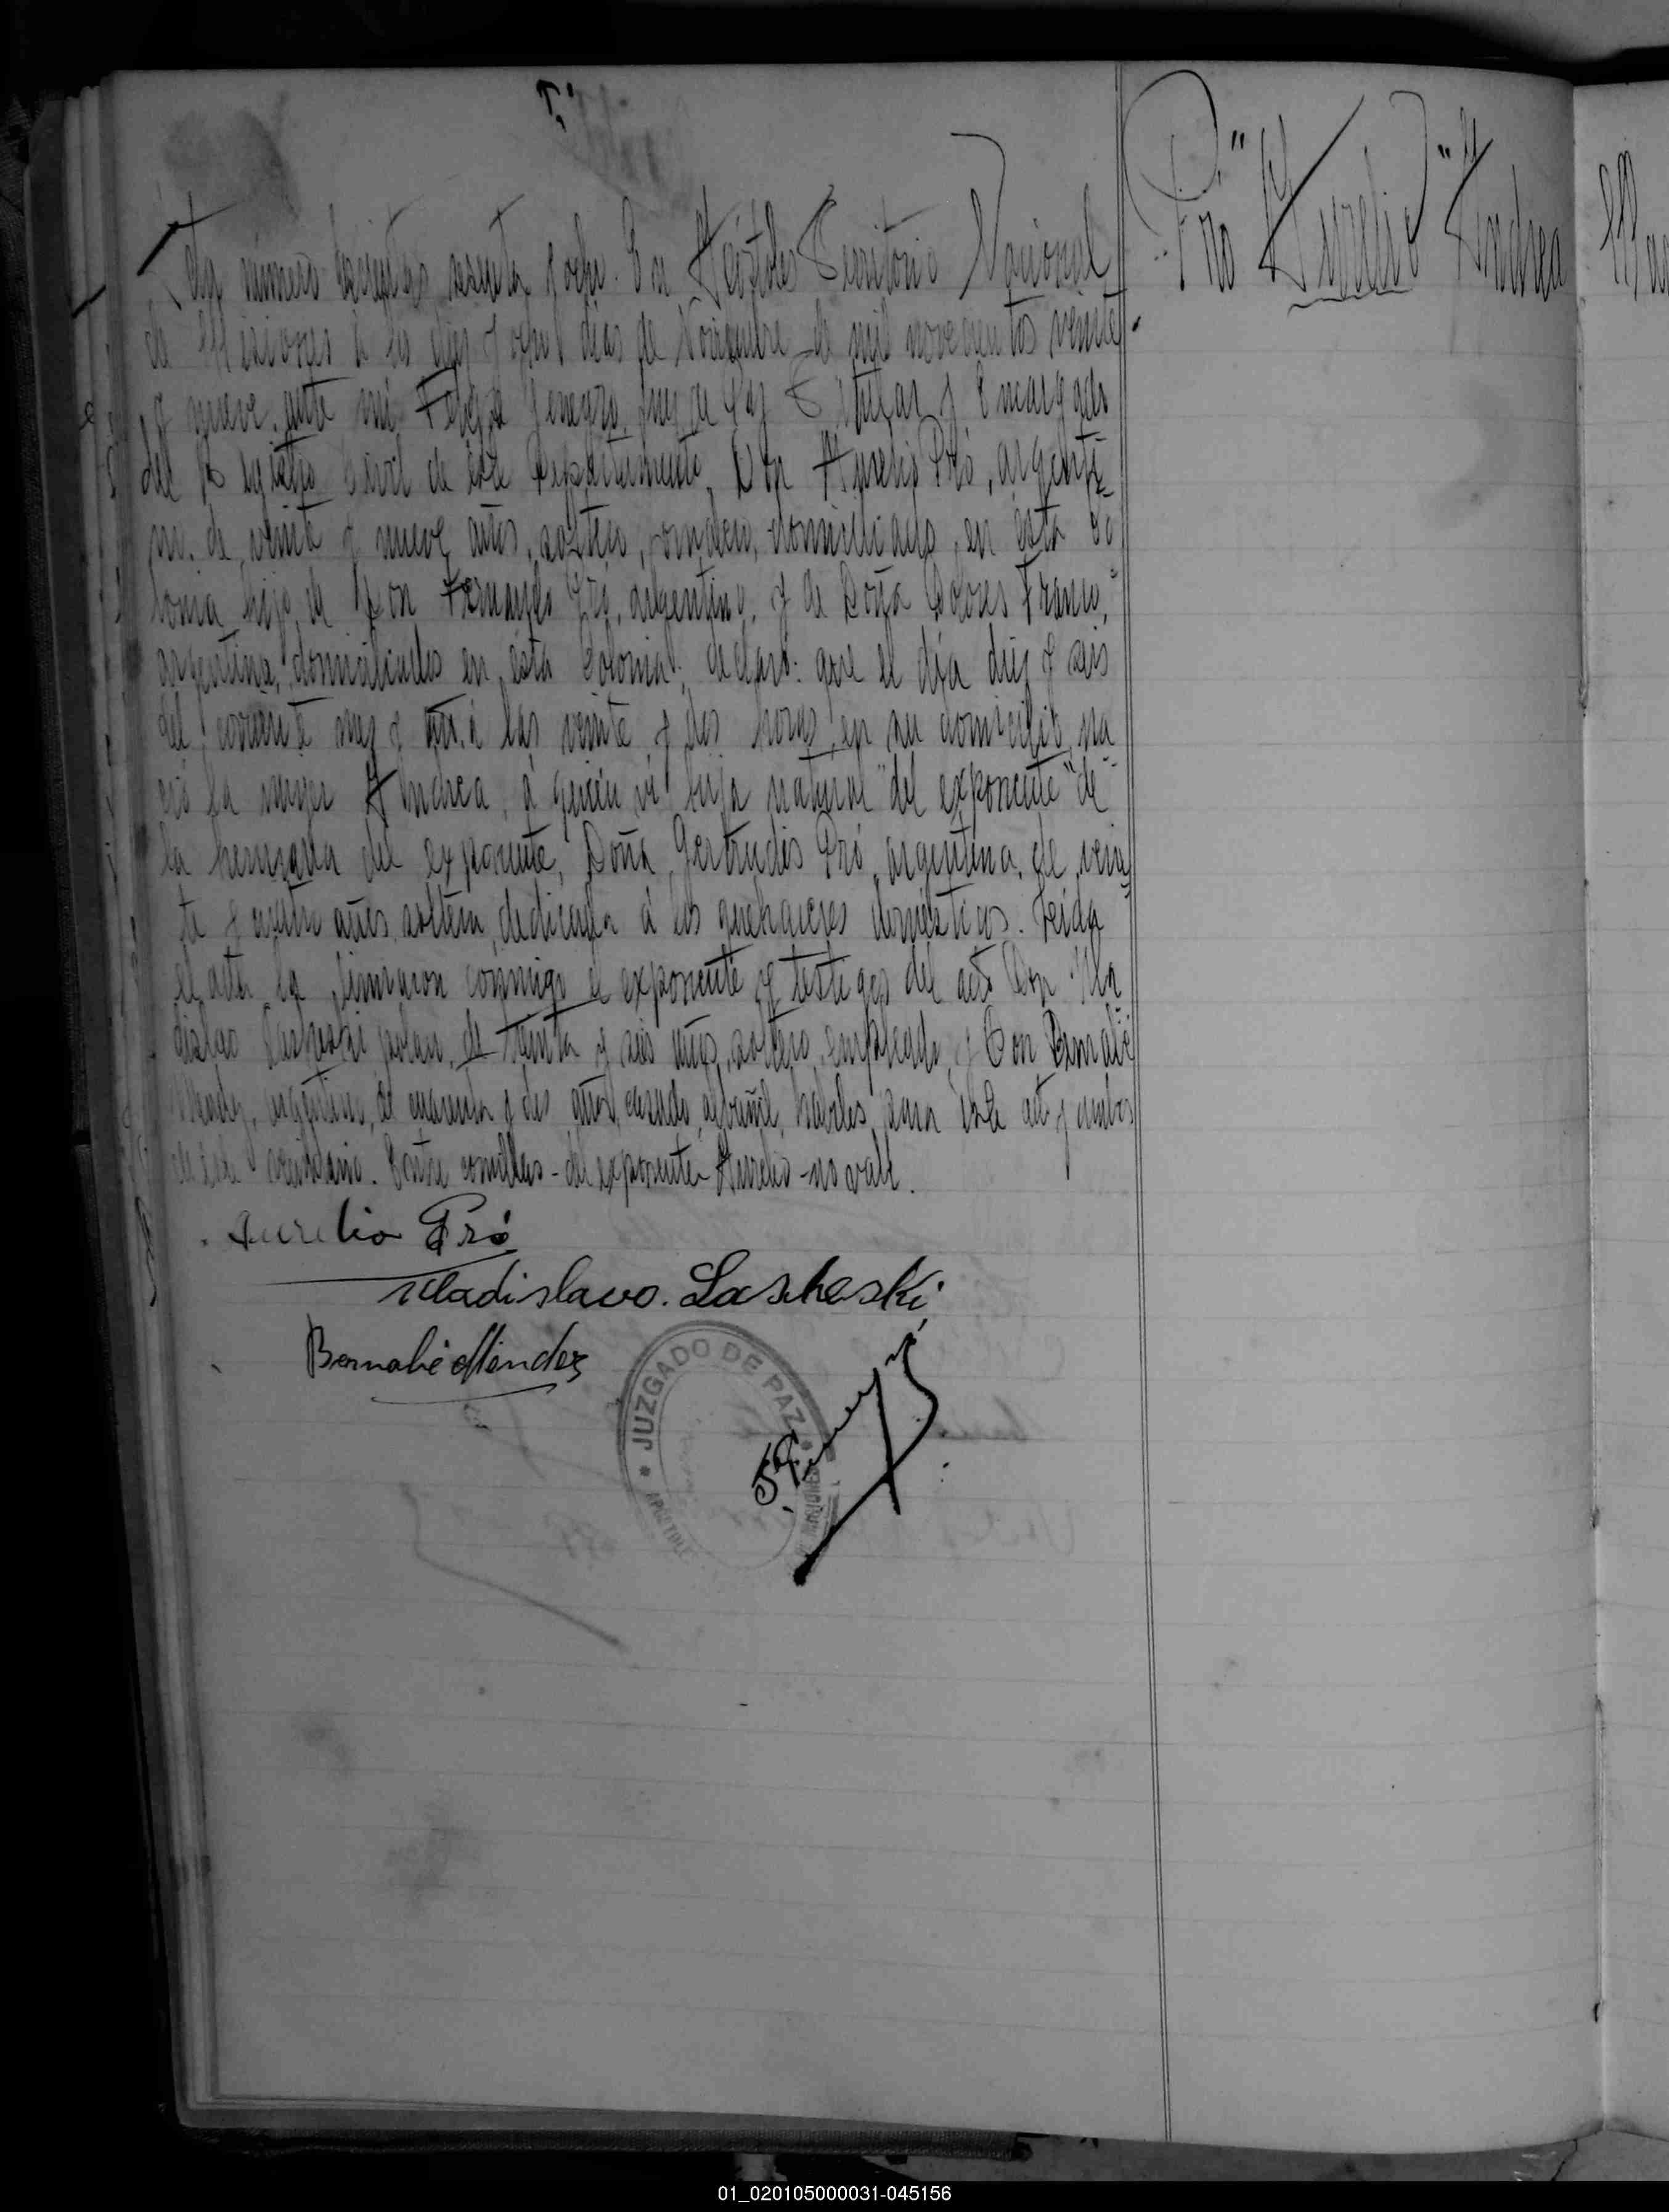 Pró "Aurelio" Andrea
Acta número doscientos sesenta y ocho. En Apóstoles Territorio Nacional
de Misiones á los diez y ocho días de Noviembre de mil novecientos veinte
y nueve, ante mí Juez de Paz Titular y Encargado
del Registro Civil de éste Departamento, Don Aurelio Pró, argenti-
no, de veinte y nueve años, soltero, domiciliado en ésta Co
lonia, hijo de Don Fernando Pró, argentino, y de Doña Dolores Franco,
argentina, domiciliados en ésta Colonia; declaró: que el día diez y seis
del corriente mes y año, á las veinte y dos horas, en su domicilio, na
ció la mujer Andrea, á quién ví hija natural "del exponente" de
la hermana del exponente, Doña Gertrudis Pró, argentina, de vein
te y cuatro años, soltera, dedicada á los quehaceres domésticos. Leída
el acta la firmaron conmigo el exponente y testigos del acto Don Vla
dislao Lasheski, polaco, de treinta y seis años, soltero, empleado, y Don Bernabé
Mendez, argentino, de cuarenta y dos años, casado, albañil, hábiles para éste acto y ambos
de éste vecindario. Entre comillas - del exponente - Aurelio - no vale.
Aurelio Pró
Uladislavo. Lasheski
Bernabé Mendez
JUZGADO DE PAZ
APOSTOLES
MISIONES
01_020105000031-045156